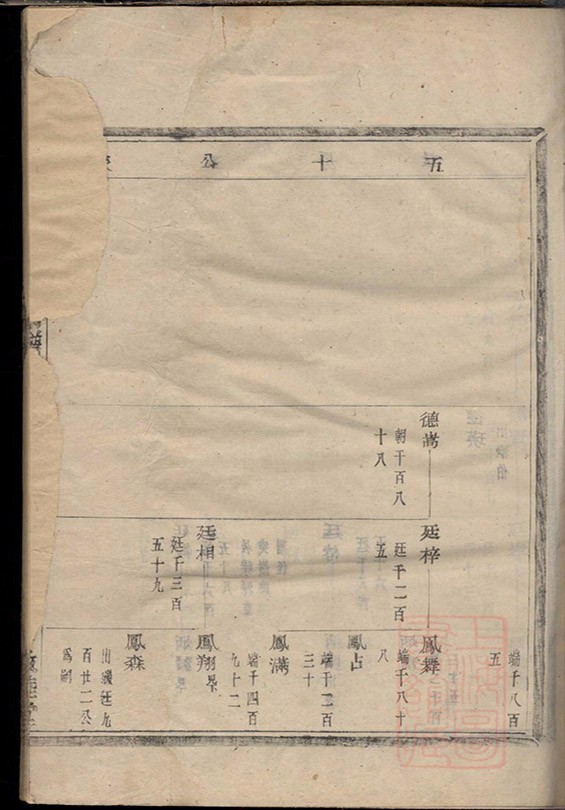 五十公
德嵩
朝千百八
十八
廷梓
廷千二百
五
廷相
廷千三百
五十九
端千八百
五
鳳舞
端千八十
八
鳳占
端千二百
三十
鳳滿
端千四百
九十二
鳳翔
鳳森
出繼廷九
百廿二公
為嗣
譜